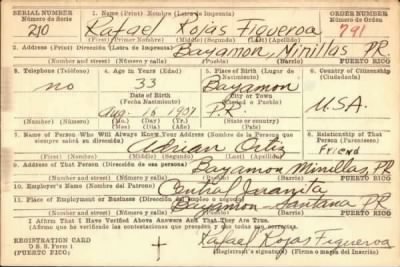 SERIAL NUMBER 1. Name (Print) Nombre (Letra de Imprenta) ORDER NUMBER
Número de Serie Número de Orden
210 Rafael Rojas Figueroa 791
(First) Primer Nombre) (Middle) (Segundo) (Last) (Apellido)
2. Address (Print) Dirección (Letra de Imprenta)
Bayamon Minillas P.R.
(Number and street) (Número y calle) (Town) (Pueblo) PUERTO RICO
3. Telephone (Teléfono) 4. Age in Years (Edad) 5. Place of Birth (Lugar de Nacimiento) 6. Country of Citizenship (Ciudadanía)
no 33 Bayamon U.S.A.
Date of Birth (Fecha Nacimiento) (Town or (Pueblo)
Aug. 15 1907 P.R.
(State or country)
7. Name of Person Who Will Always Know Your Address (Nombre de la Persona que siempre sabrá su dirección) 8. Relationship of That Person (Parentesco)
Adrian Ortiz Friend
(Nombre) (Middle) (Segundo) (Last) (Apellido)
9. Address of That Person (Dirección de esa persona)
Bayamon Minillas P.R.
(Number and street) (Número y calle) (Town) (Pueblo) PUERTO RICO
10. Employer's Name (Nombre del Patrono) Central Juanita
11. Place of Employment or Business (Dirección del empleo)
Bayamon Santana P.R.
(Number and street) (Número y calle) (Town) (Pueblo) PUERTO RICO
I Affirm That I Have Verified Above Answers and That They Are True.
REGISTRATION CARD
D. S. S. Form 1
(PUERTO RICO) Rafael Rojas Figueroa
(Registrant's signature) (Firma o marca del inscrito)